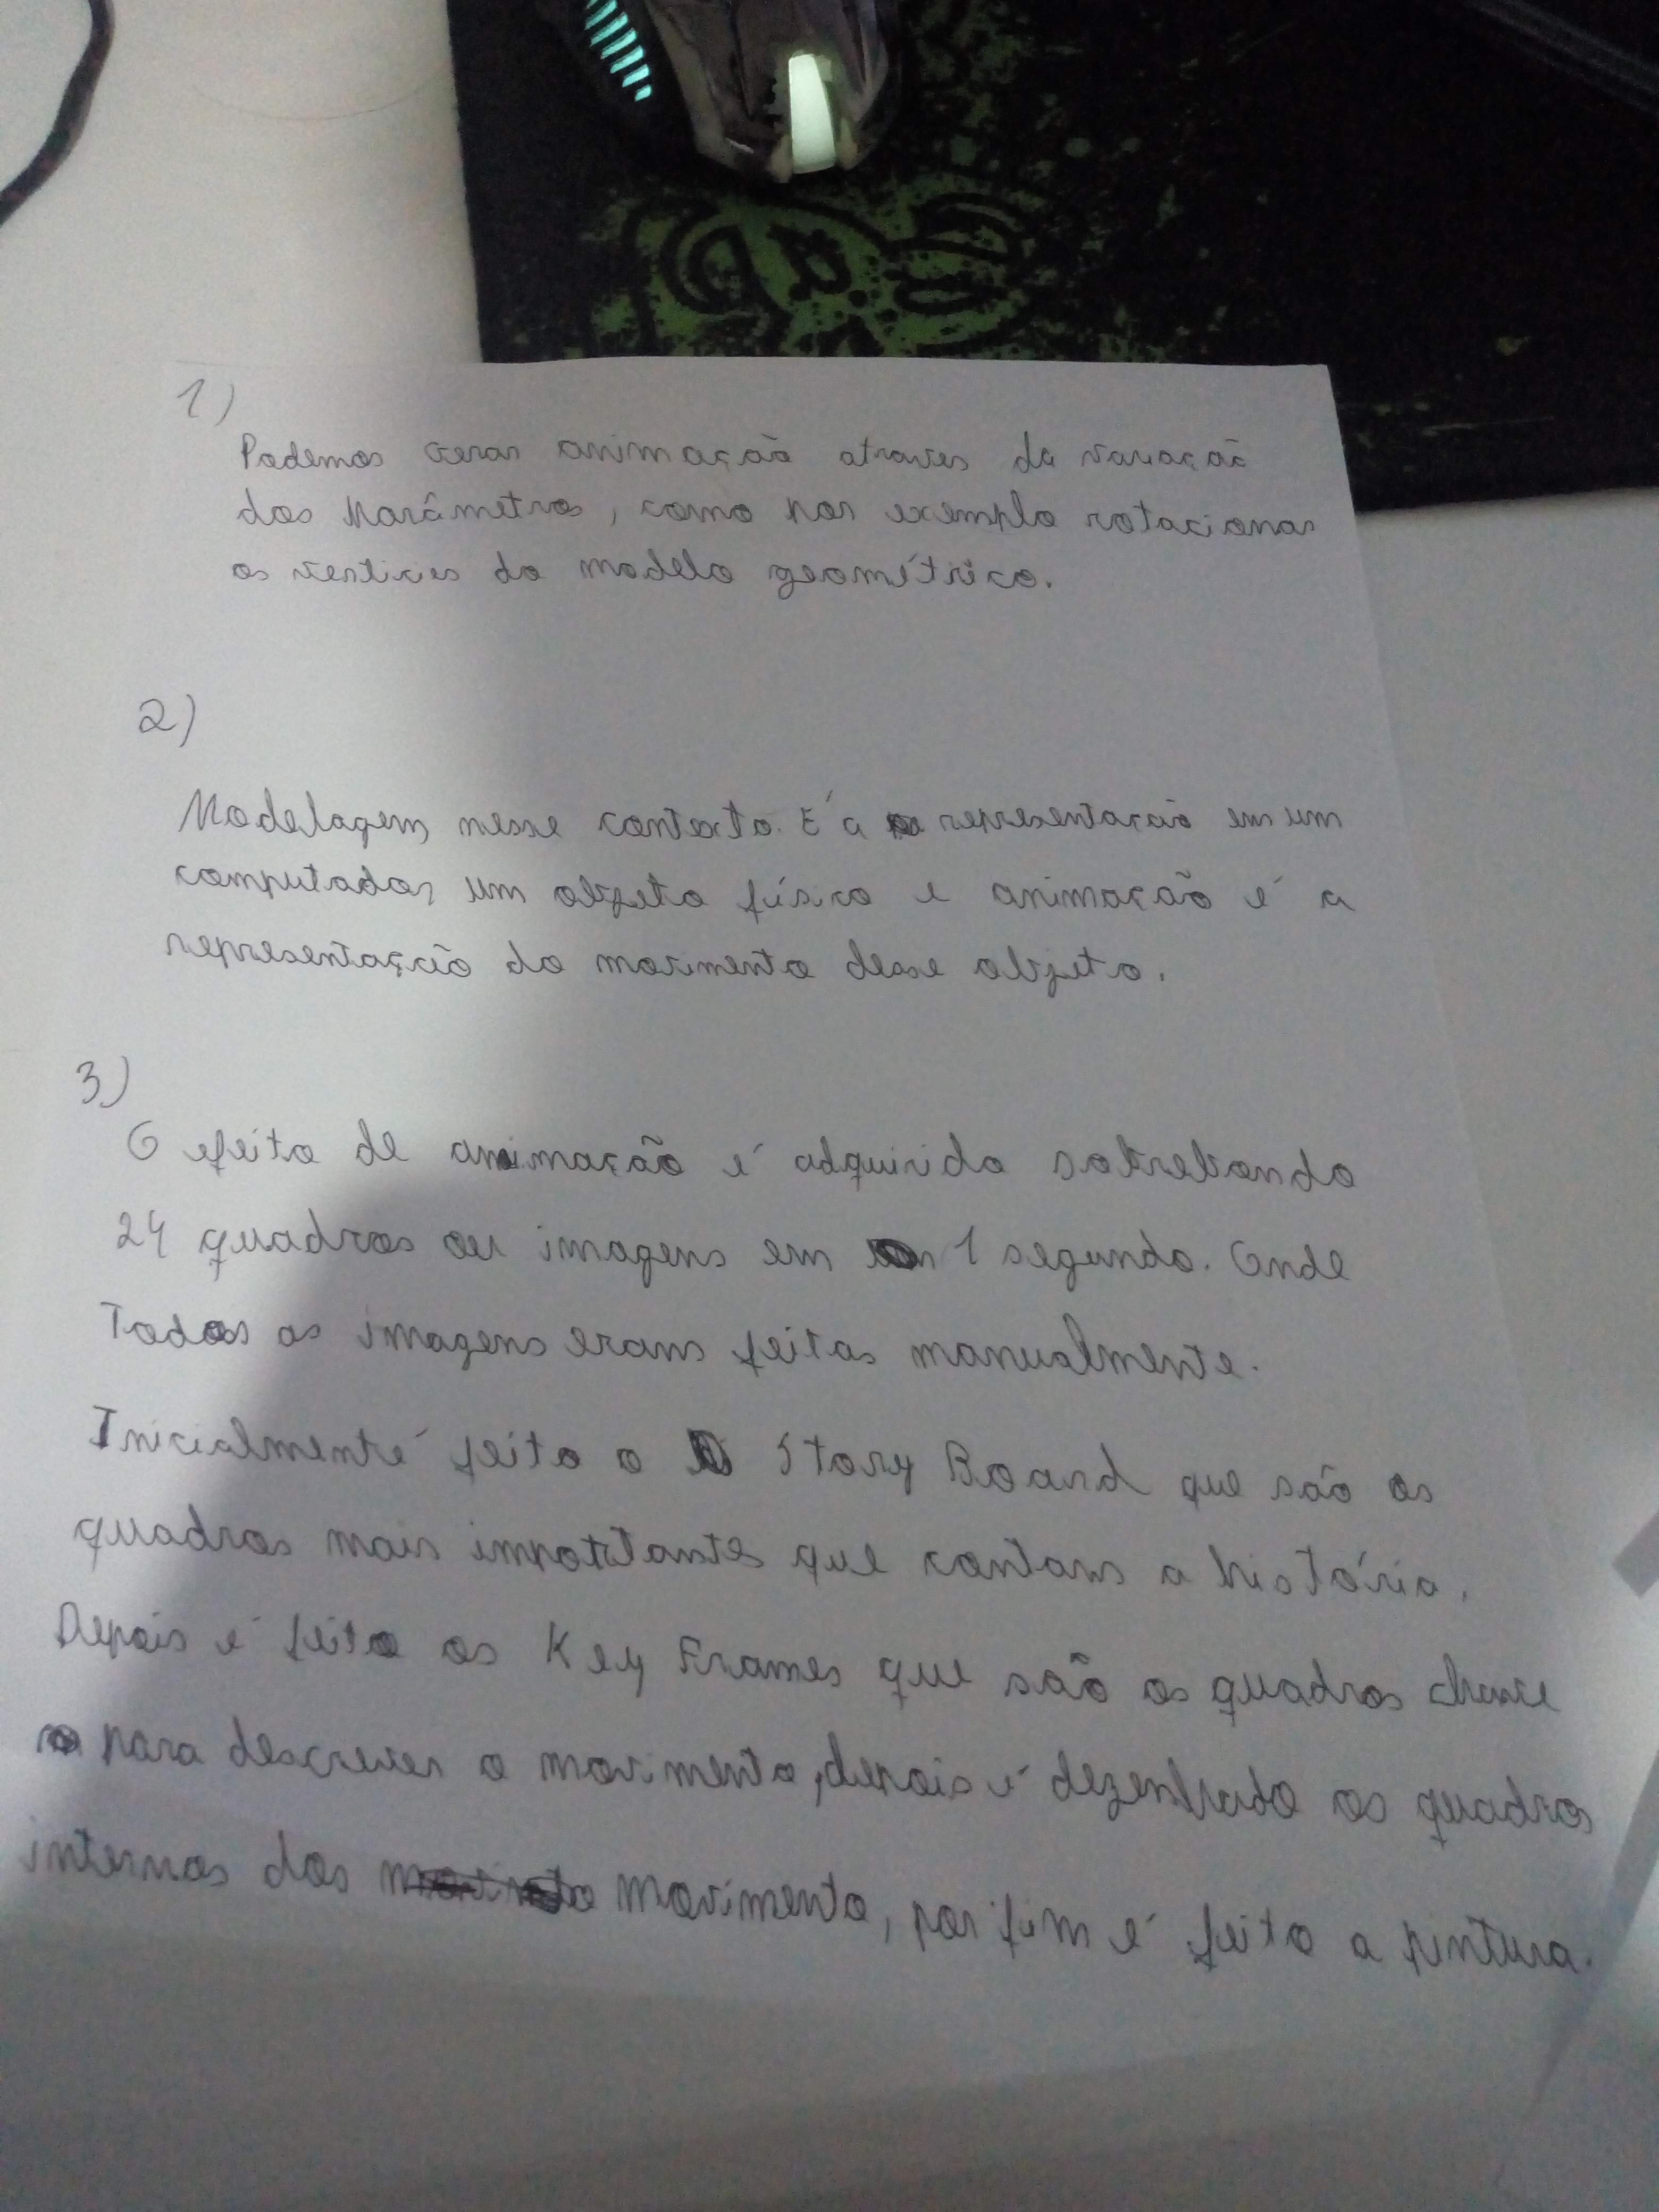 1)
Podemos gerar animação atraves da variação
dos parâmetros, como por exemplo rotacionar
os vertices do modelo geométrico.
2)
Modelagem, nesse contexto. É a representação em um
computador, um objeto físico e animação é a
representação do movimento desse objeto.
3)
O efeito de animação é adquirido sobrebondo
24 quadros ou imagens em 1 segundo. Onde
Todas as imagens eram feitas manualmente.
Inicialmente é feito o Story Board que são os
quadros mais importantes que contam a história.
Depois é feito os Key Frames que são os quadros chave
para descrever o movimento, depois é dezenhado os quadros
internos dos movimento, por fim é feito a pintura.